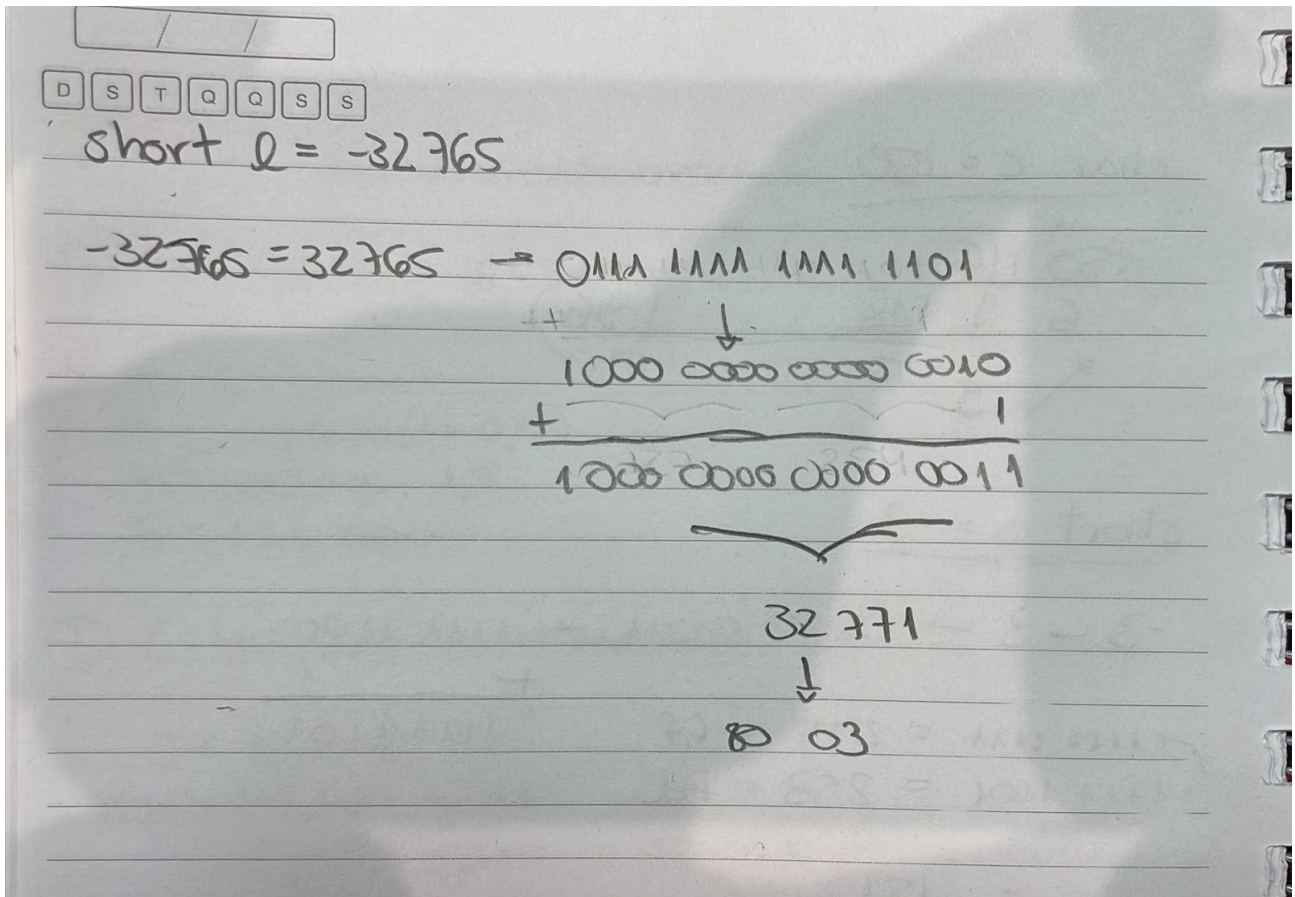 / /
D S T Q Q S S
short l = -32765
-32765 = 32765 → 0111 1111 1111 1101
↓
1000 0000 0000 0010
+ 1
1000 0000 0000 0011
32771
↓
80 03